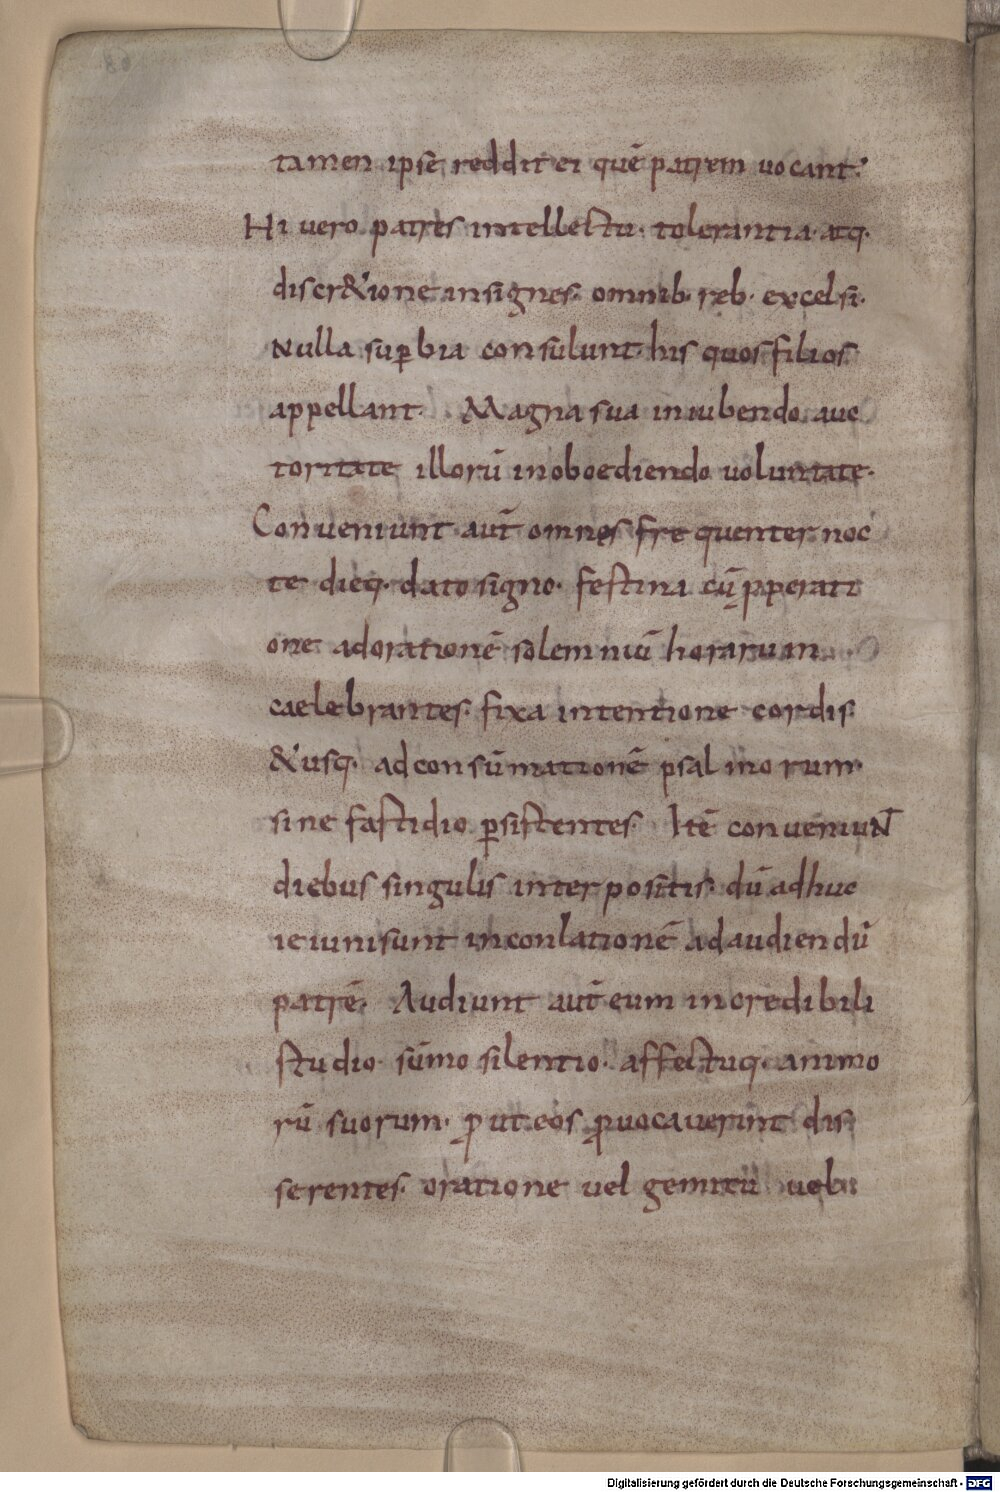 tamen ipse reddit ei quē patrem uocant.
Hi uero patres intellectu· tolerantia· atq·
discr&ione insignes· omnib· reb· excelsi·
Nulla sup̱bia consulunt· his quos filios
appellant· Magna sua iniubendo auc
toritate illorū inoboediendo uoluntate·
Conueniunt aut̄ omnes frequenter noc
te dieq· dato signo· festina cū p̱perati
one adorationē solemniū horarum
caelebrantes· fixa intentione cordis·
&usq· adconsūmationē psalmorum·
sine fastidio p̱sistentes· Itē conueniuNT
diebus singulis interpositis· dū adhuc
ieiuni sunt inconlationē adaudiendū
patrē· Audiunt aut̄ eum incredibili
studio· sūmo silentio· affectuq· animo
rū suorum· ꝓut eos ꝓuocauerint dis
serentes· oratione uel gemitū uel